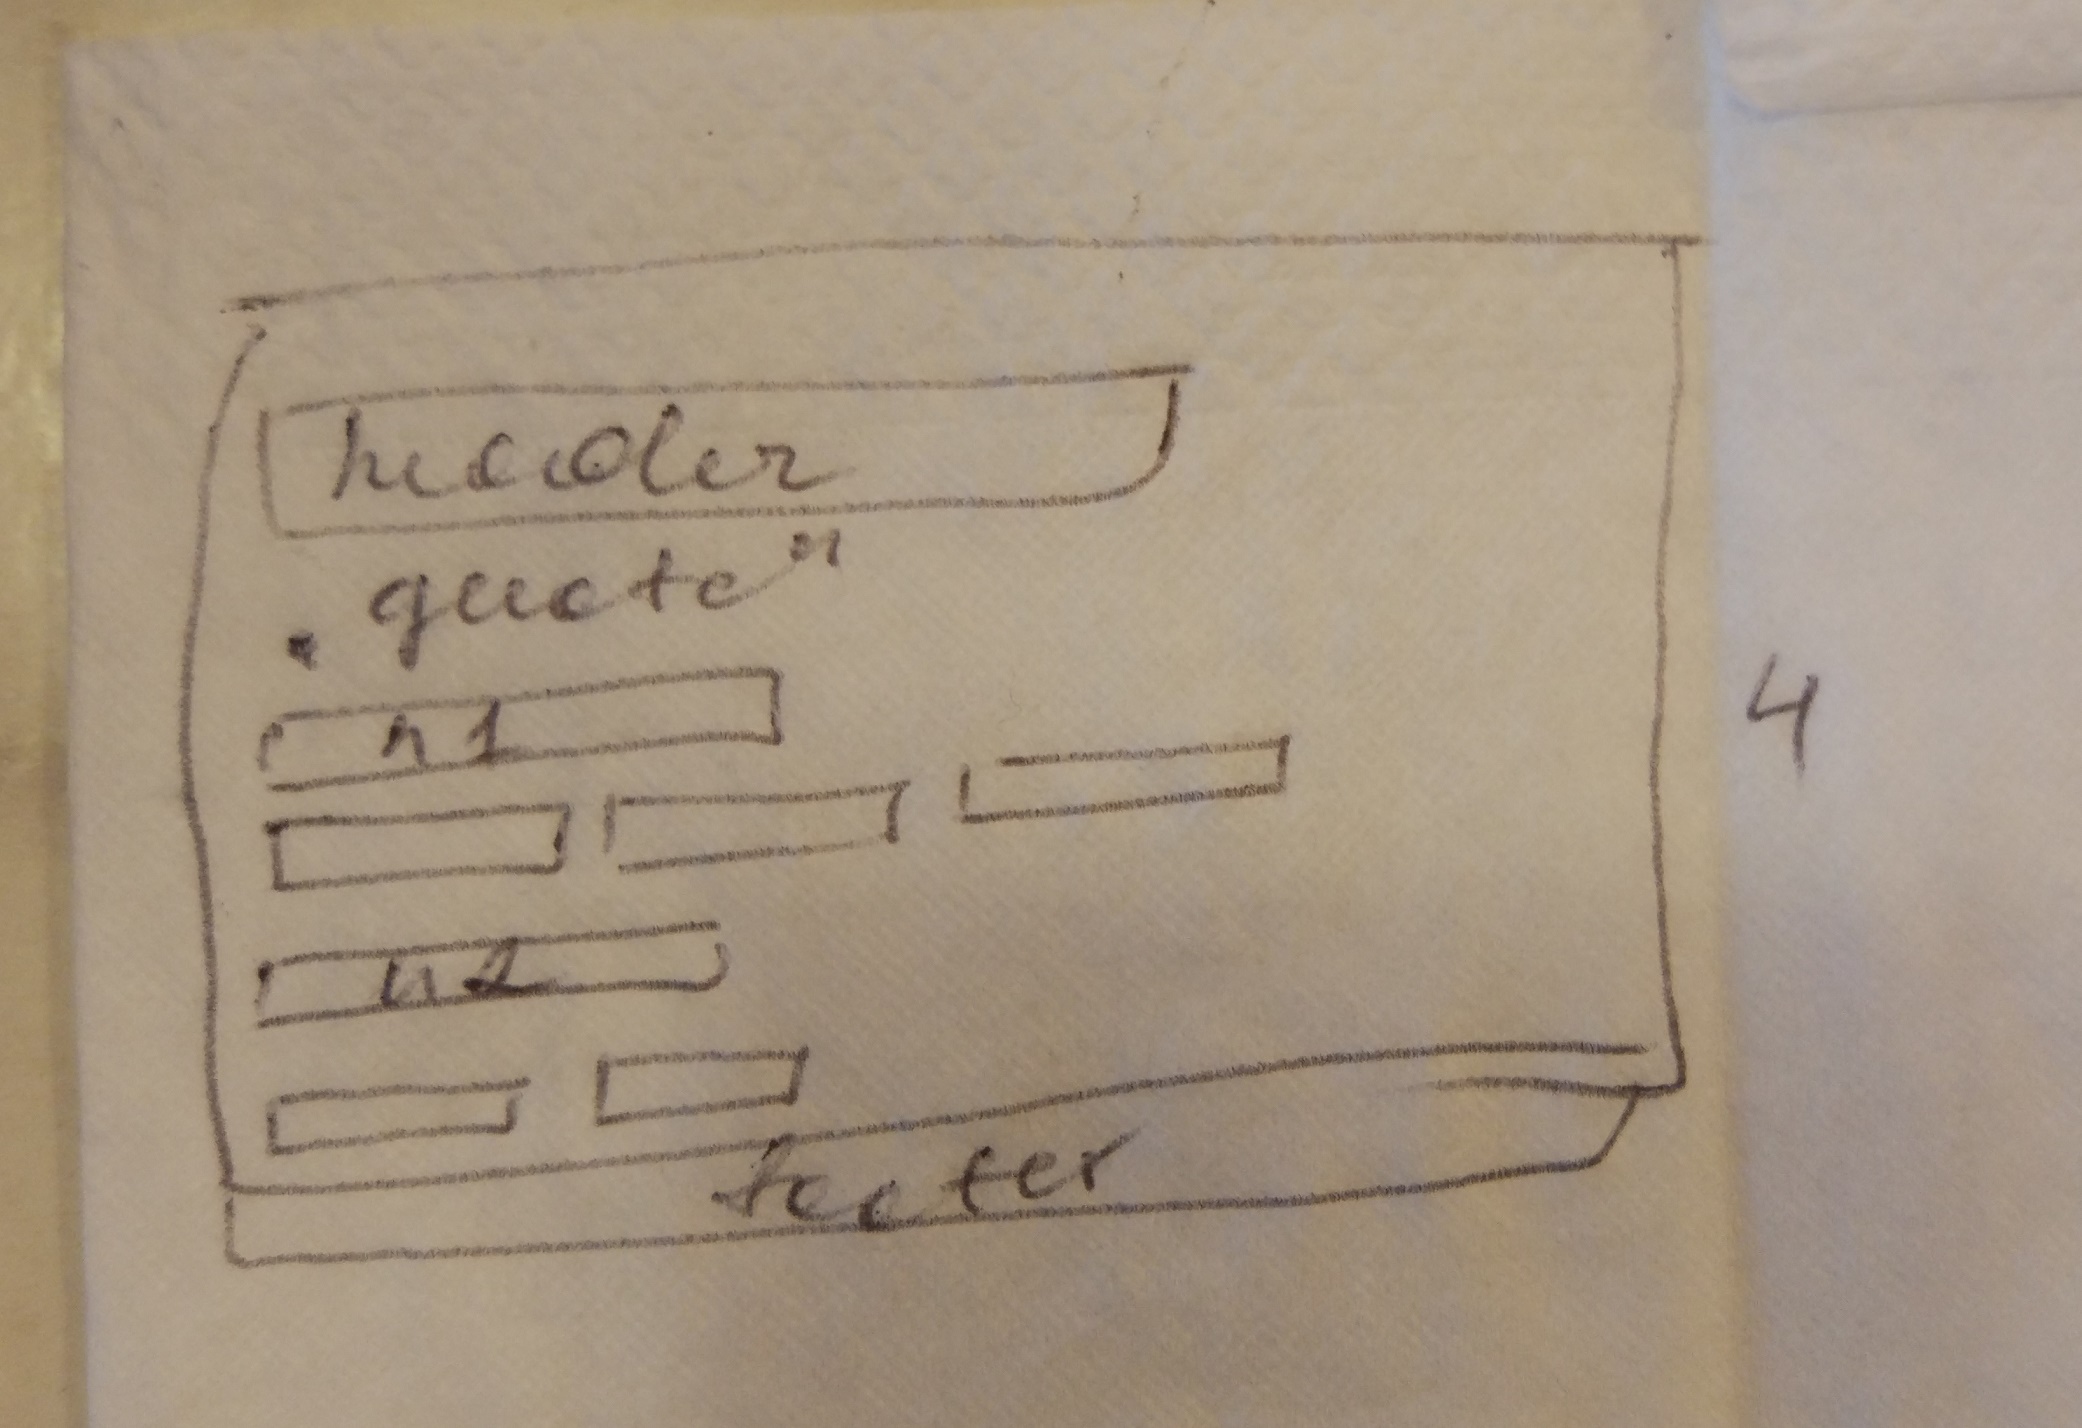 header
"quote"
n1
n2
footer
4